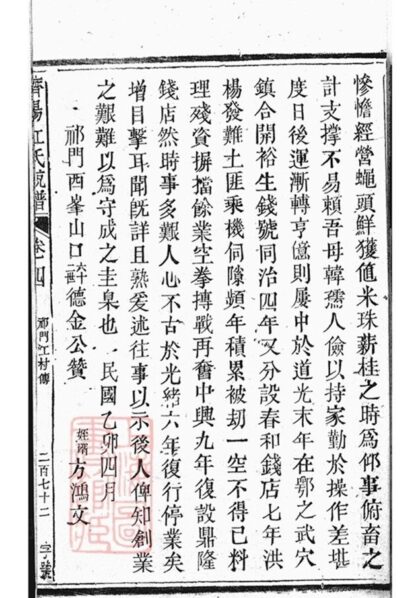 慘憺經營蠅頭鮮獲值米珠薪桂之時爲仰事俯畜之
計支撐不易賴吾母韓孺人儉以持家勤於操作差堪
度日後運漸轉亨億則屢中於道光末年在鄂之武穴
鎮合開裕生錢號同治四年又分設春和錢店七年洪
楊發難土匪乘機伺隙頻年積累被刧一空不得已料
理殘資摒擋餘業空拳搏戰再奮中興九年復設鼎隆
錢店然時事多艱人心不古於光緒六年復行停業矣
增目擊耳聞既詳且熟爰述往事以示後人俾知創業
之艱難以爲守成之圭臬也 民國乙卯四月
姪壻 方鴻文
祁門西峯山口六十二世德金公贊
濟陽江氏統譜
卷十四
祁門江村傳
二百七十二